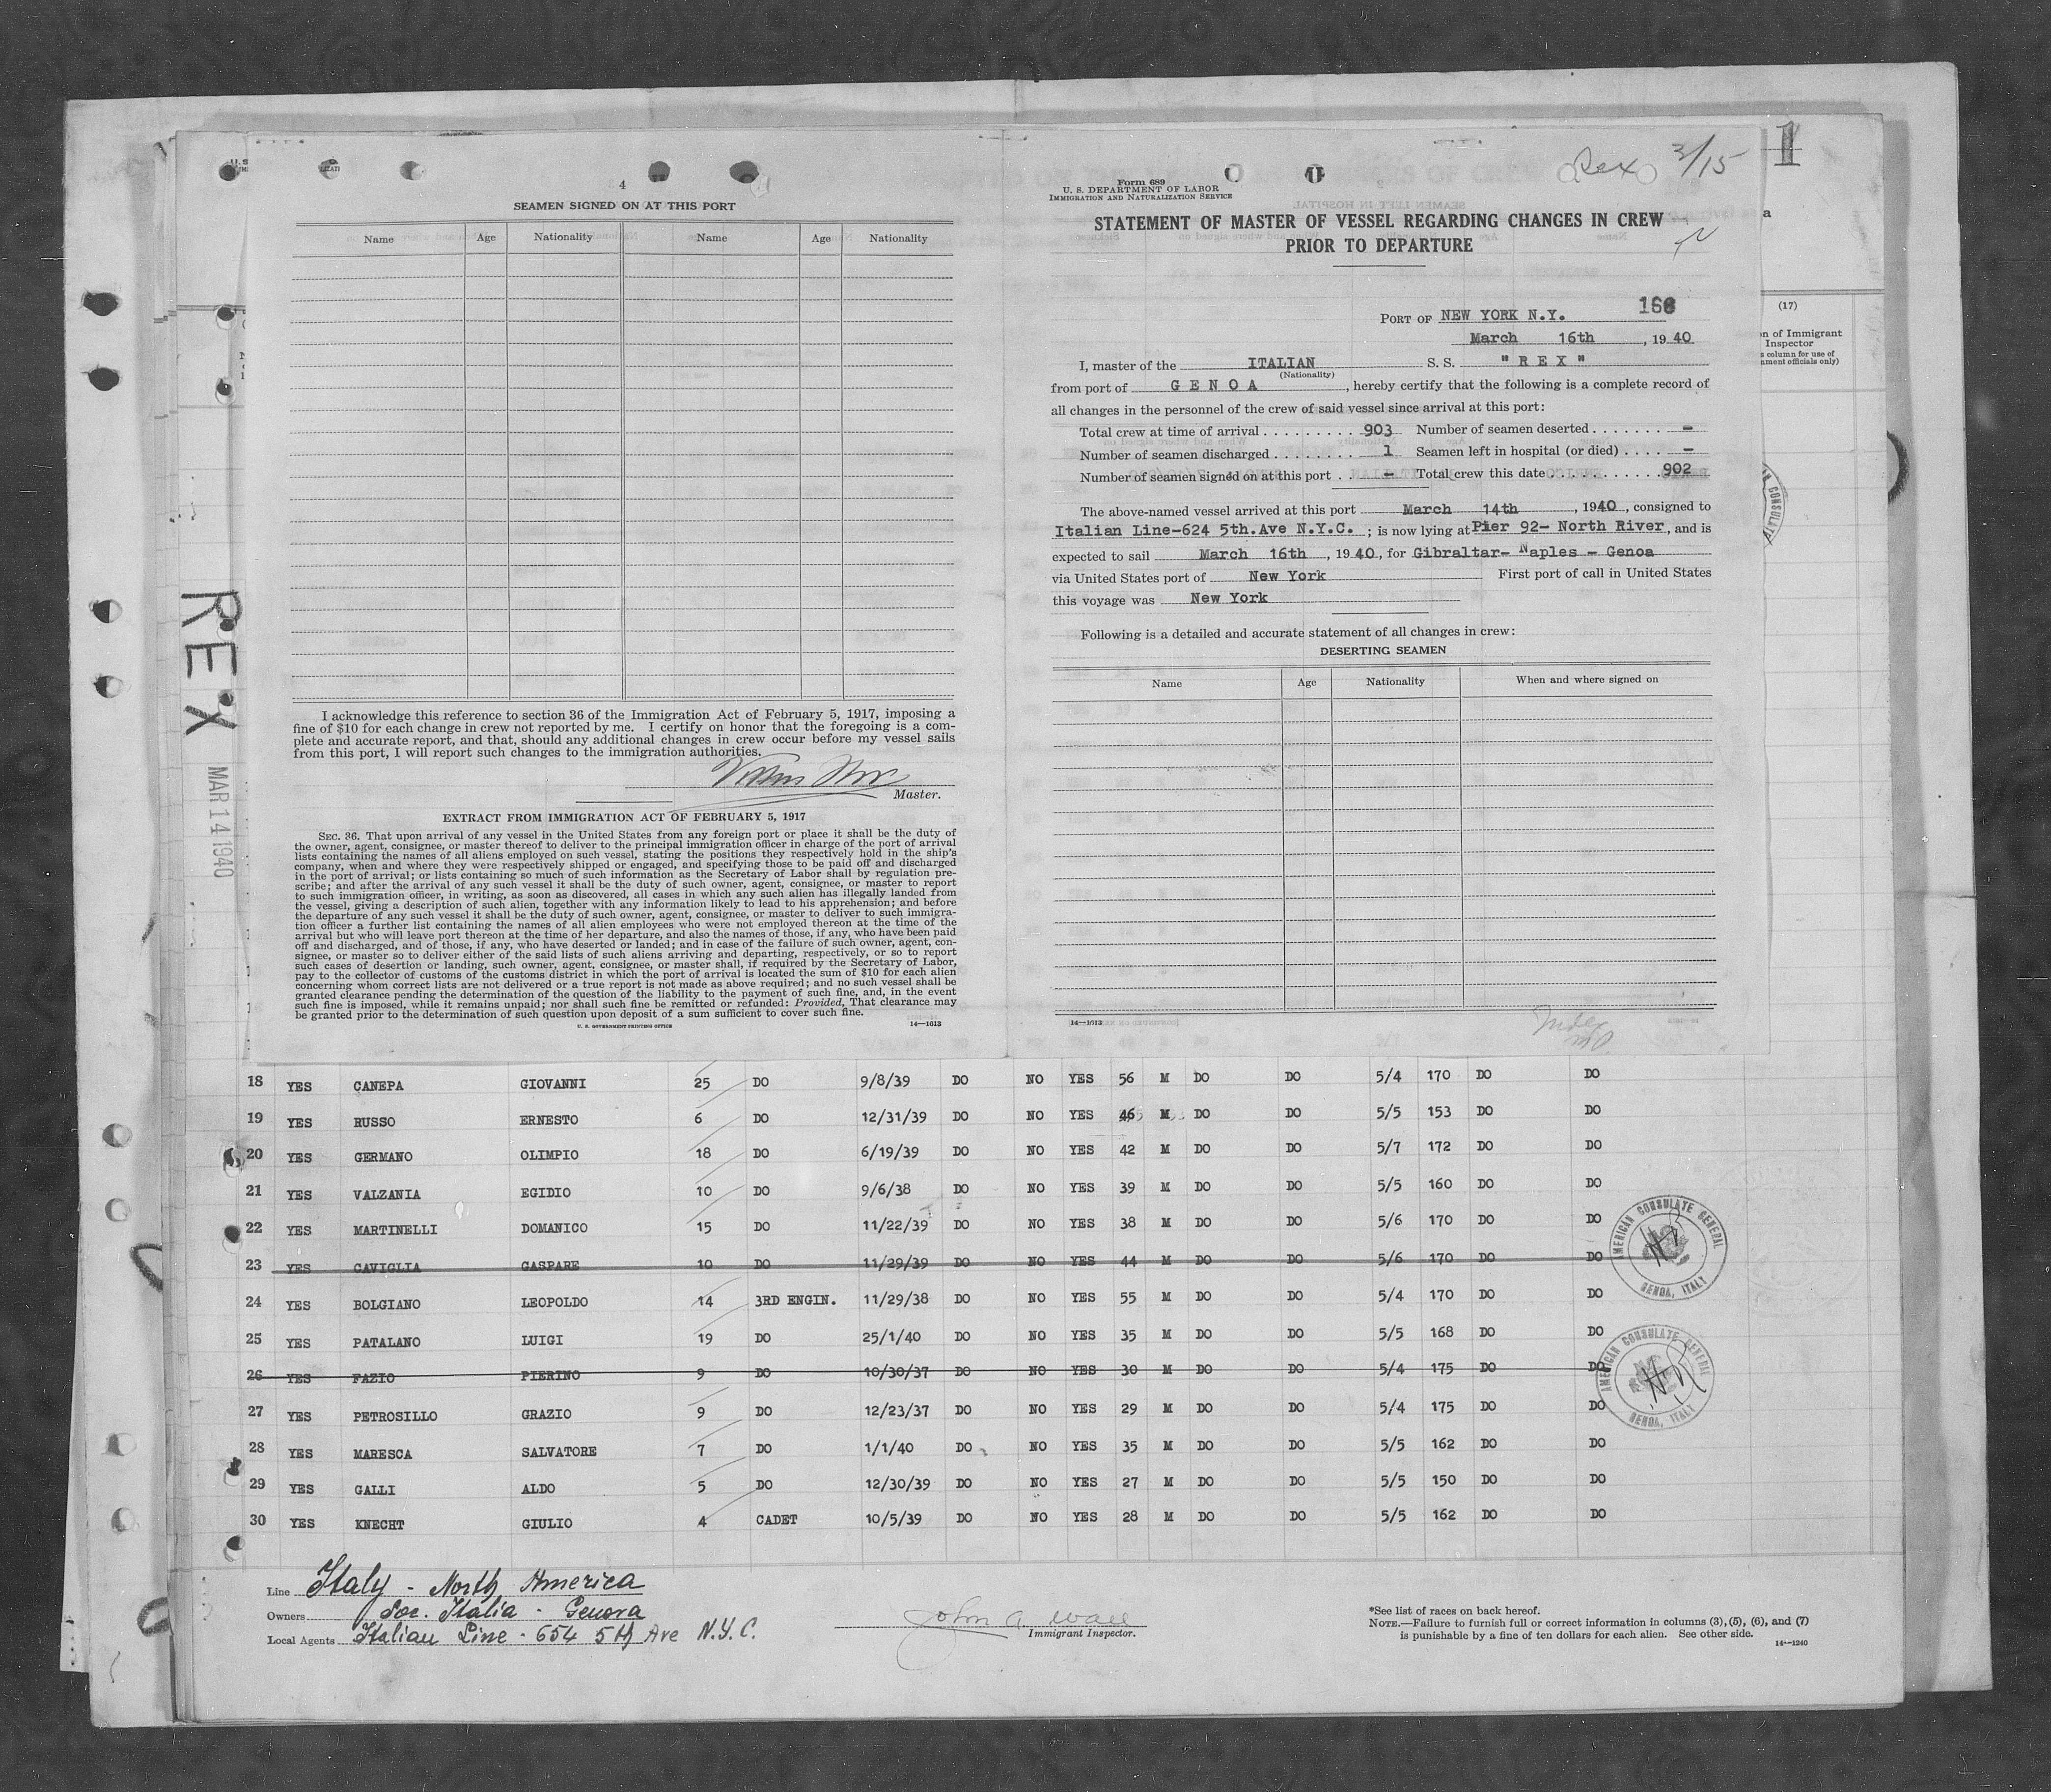 4
SEAMEN SIGNED ON AT THIS PORT
Name Age Nationality Name Age Nationality
I acknowledge this reference to section 36 of the Immigration Act of February 5, 1917, imposing a
fine of $10 for each change in crew not reported by me. I certify on honor that the foregoing is a com-
plete and accurate report, and that, should any additional changes in crew occur before my vessel sails
from this port, I will report such changes to the immigration authorities.
Master.
EXTRACT FROM IMMIGRATION ACT OF FEBRUARY 5, 1917
SEC. 36. That upon arrival of any vessel in the United States from any foreign port or place it shall be the duty of
the owner, agent, consignee, or master thereof to deliver to the principal immigration officer in charge of the port of arrival
lists containing the names of all aliens employed on such vessel, stating the positions they respectively hold in the ship's
company, when and where they were respectively shipped or engaged, and specifying those to be paid off and discharged
in the port of arrival; or lists containing so much of such information as the Secretary of Labor shall by regulation pre-
scribe; and after the arrival of any such vessel it shall be the duty of such owner, agent, consignee, or master to report
to such immigration officer, in writing, as soon as discovered, all cases in which any such alien has illegally landed from
the vessel, giving a description of such alien, together with any information likely to lead to his apprehension; and before
the departure of any such vessel it shall be the duty of such owner, agent, consignee, or master to deliver to such immigra-
tion officer a further list containing the names of all alien employees who were not employed thereon at the time of the
arrival but who will leave port thereon at the time of her departure, and also the names of those, if any, who have been paid
off and discharged, and of those, if any, who have deserted or landed; and in case of the failure of such owner, agent, con-
signee, or master so to deliver either of the said lists of such aliens arriving and departing, respectively, or so to report
such cases of desertion or landing, such owner, agent, consignee, or master shall, if required by the Secretary of Labor,
pay to the collector of customs of the customs district in which the port of arrival is located the sum of $10 for each alien
concerning whom correct lists are not delivered or a true report is not made as above required; and no such vessel shall be
granted clearance pending the determination of the question of the liability to the payment of such fine, and, in the event
such fine is imposed, while it remains unpaid; nor shall such fine be remitted or refunded: Provided, That clearance may
be granted prior to the determination of such question upon deposit of a sum sufficient to cover such fine.
U. S. GOVERNMENT PRINTING OFFICE 14—1613
REX
MAR 14 1940
Rex 3/15
1
Form 689
U. S. DEPARTMENT OF LABOR
IMMIGRATION AND NATURALIZATION SERVICE
STATEMENT OF MASTER OF VESSEL REGARDING CHANGES IN CREW
PRIOR TO DEPARTURE
166
PORT OF NEW YORK N.Y.
March 16th, 1940
I, master of the ITALIAN S. S. "REX"
(Nationality)
from port of GENOA, hereby certify that the following is a complete record of
all changes in the personnel of the crew of said vessel since arrival at this port:
Total crew at time of arrival . . . . . . . . . . 903 Number of seamen deserted . . . . . . . –
Number of seamen discharged . . . . . . . . 1 Seamen left in hospital (or died) . . . . –
Number of seamen signed on at this port . . – Total crew this date . . . . . . . . . . 902
The above-named vessel arrived at this port March 14th, 1940, consigned to
Italian Line-624 5th.Ave N.Y.C. ; is now lying at Pier 92- North River, and is
expected to sail March 16th, 1940, for Gibraltar- Naples - Genoa
via United States port of New York First port of call in United States
this voyage was New York
Following is a detailed and accurate statement of all changes in crew:
DESERTING SEAMEN
Name Age Nationality When and where signed on
14—1613
Index
(17)
n of Immigrant
Inspector
s column for use of
nment officials only)
18 YES CANEPA GIOVANNI 25 DO 9/8/39 DO NO YES 56 M DO DO 5/4 170 DO DO
19 YES RUSSO ERNESTO 6 DO 12/31/39 DO NO YES 46 M DO DO 5/5 153 DO DO
20 YES GERMANO OLIMPIO 18 DO 6/19/39 DO NO YES 42 M DO DO 5/7 172 DO DO
21 YES VALZANIA EGIDIO 10 DO 9/6/38 DO NO YES 39 M DO DO 5/5 160 DO DO
22 YES MARTINELLI DOMANICO 15 DO 11/22/39 DO NO YES 38 M DO DO 5/6 170 DO DO
23 YES CAVIGLIA GASPARE 10 DO 11/29/39 DO NO YES 44 M DO DO 5/6 170 DO DO
24 YES BOLGIANO LEOPOLDO 14 3RD ENGIN. 11/29/38 DO NO YES 55 M DO DO 5/4 170 DO DO
25 YES PATALANO LUIGI 19 DO 25/1/40 DO NO YES 35 M DO DO 5/5 168 DO DO
26 YES FAZIO PIERINO 9 DO 10/30/37 DO NO YES 30 M DO DO 5/4 175 DO DO
27 YES PETROSILLO GRAZIO 9 DO 12/23/37 DO NO YES 29 M DO DO 5/4 175 DO DO
28 YES MARESCA SALVATORE 7 DO 1/1/40 DO NO YES 35 M DO DO 5/5 162 DO DO
29 YES GALLI ALDO 5 DO 12/30/39 DO NO YES 27 M DO DO 5/5 150 DO DO
30 YES KNECHT GIULIO 4 CADET 10/5/39 DO NO YES 28 M DO DO 5/5 162 DO DO
AMERICAN CONSULATE GENERAL GENOA, ITALY
AMERICAN CONSULATE GENERAL GENOA, ITALY
Line Italy - North America
Owners Soc. Italia - Genova
Local Agents Italian Line - 654 5th Ave N.Y.C.
John A. Wall
Immigrant Inspector.
*See list of races on back hereof.
NOTE.—Failure to furnish full or correct information in columns (3), (5), (6), and (7)
is punishable by a fine of ten dollars for each alien. See other side.
14—1240